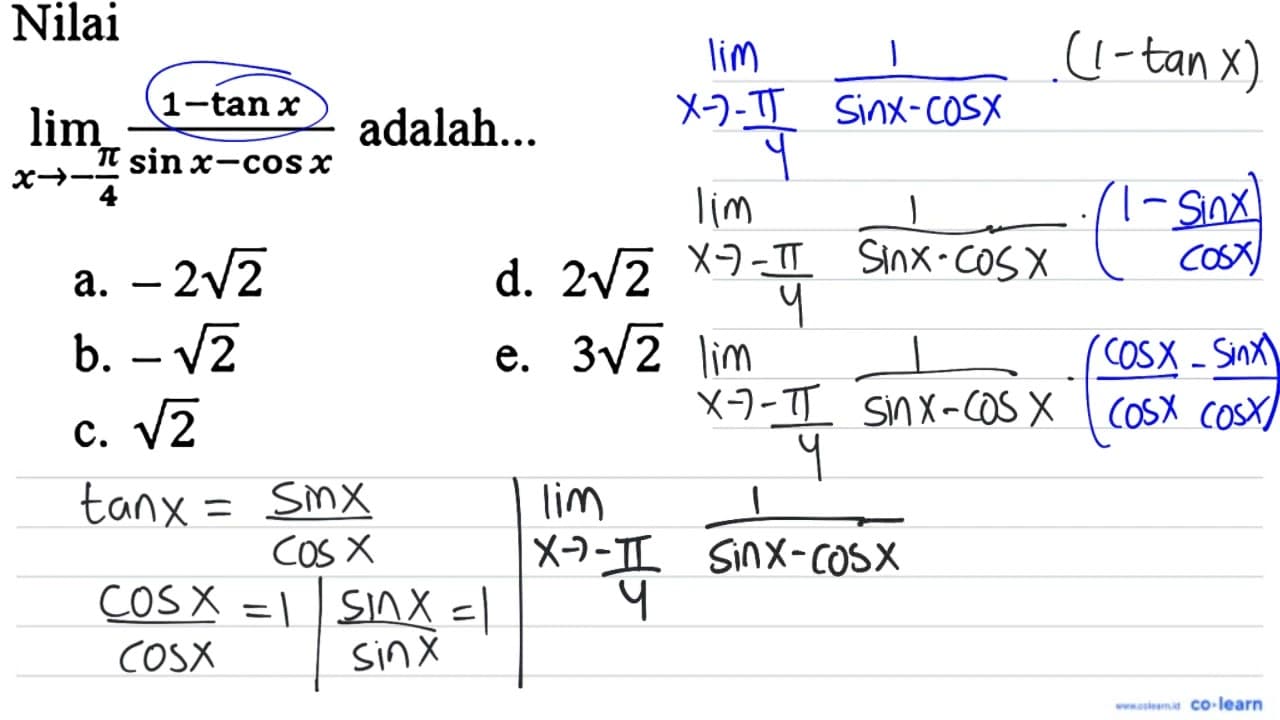 Nilai
lim x→-π/4 (1-tan x)/(sin x-cos x) adalah...
a. -2√2
b. -√2
c. √2
d. 2√2
e. 3√2
lim x→-π/4 1/(sinx-cosx) .(1-tan x)
lim x→-π/4 1/(sinx·cosx) ·(1-sinx/cosx)
lim x→-π/4 1/(sinx-cosx) ·(cosx/cosx - sinx/cosx)
tanx = sinx/cosx
cosx/cosx = 1 | sinx/sinx = 1
lim x→-π/4 1/(sinx-cosx)
www.colearn.id co·learn